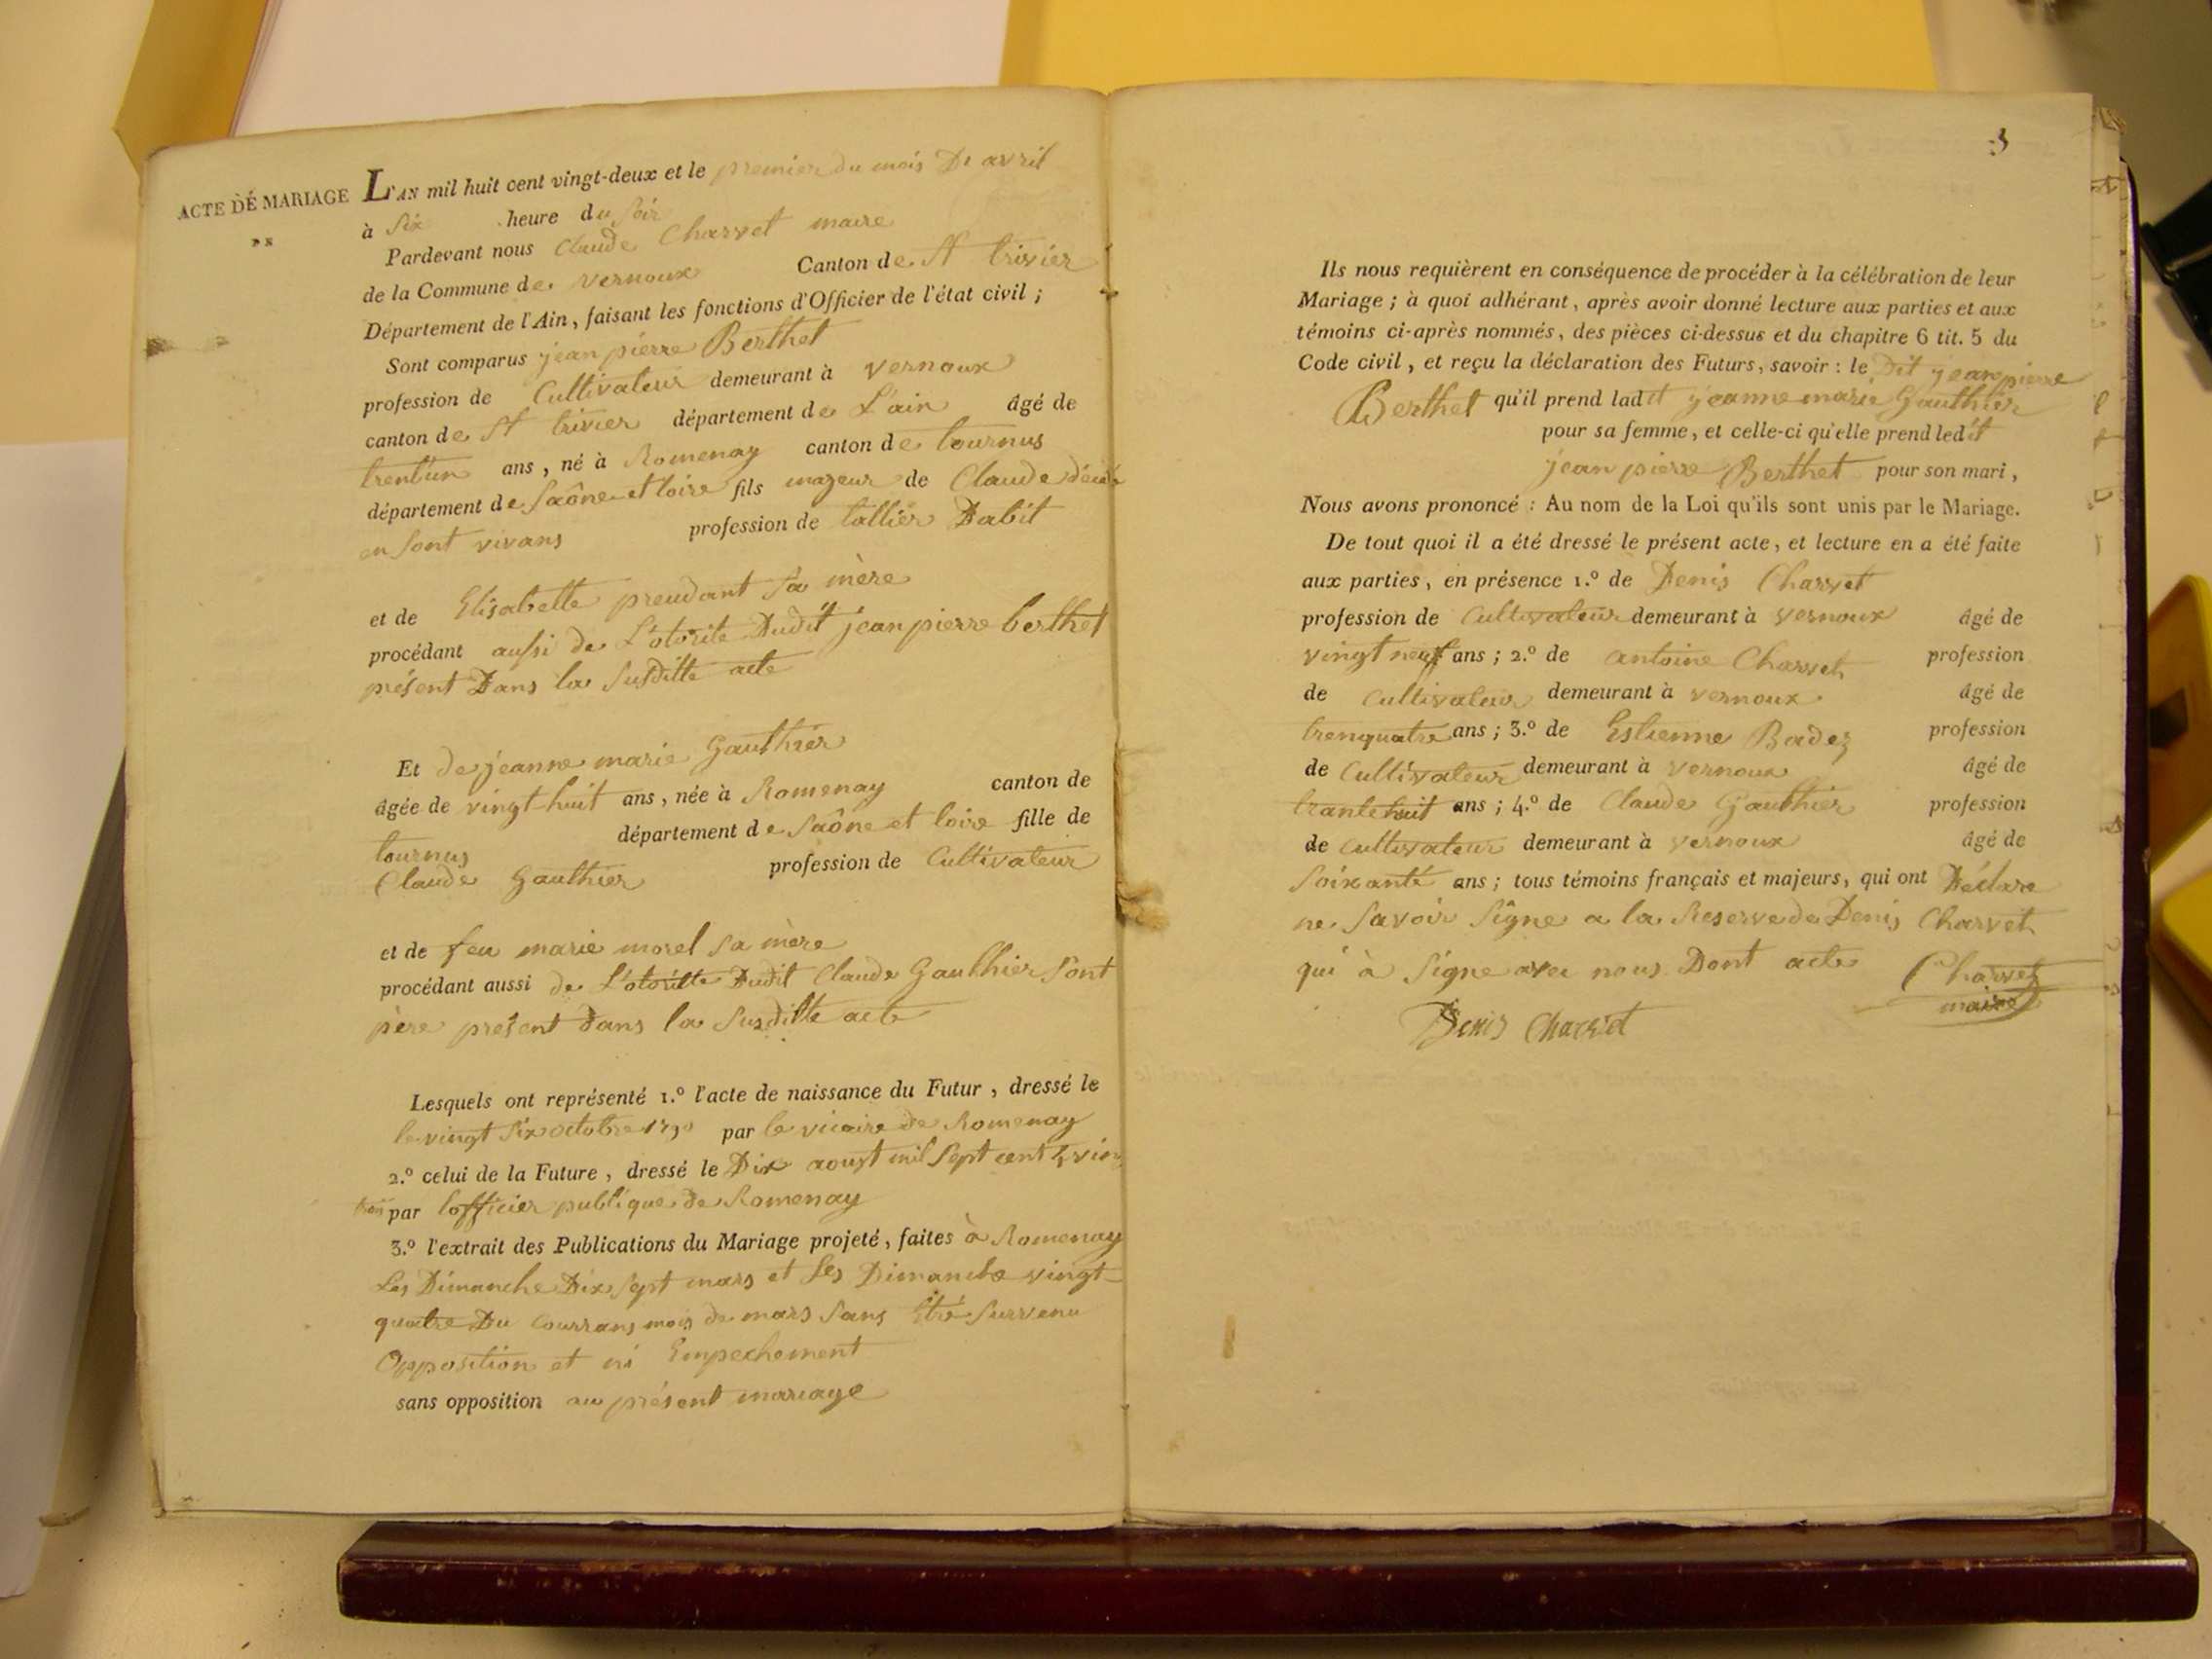 ACTE DE MARIAGE
DE
L'AN mil huit cent vingt-deux et le premier du mois De avril
à Six heure du Soir
Pardevant nous Claude Charvet maire
de la Commune de vernoux Canton de St trivier
Département de l'Ain, faisant les fonctions d'Officier de l'état civil ;
Sont comparus jean pierre Berthet
profession de Cultivateur demeurant à vernoux
canton de St trivier département de L'ain âgé de
trent'un ans, né à Romenay canton de tournus
département de Saône et loire fils majeur de Claude
en Sont vivans profession de tallier Dabit
et de Elisabette prudant Sa mère
procédant aussi de L'otorite Dudit jean pierre berthet
présent Dans la Susditte acte
Et de jeanne marie Gauthier
âgée de vingt-huit ans, née à Romenay canton de
tournus département de Saône et loire fille de
Claude Gauthier profession de Cultivateur
et de feu marie morel Sa mère
procédant aussi de L'otoritte Dudit Claude Gauthier Sont
père présent Dans la Susditte acte
Lesquels ont représenté 1.º l'acte de naissance du Futur, dressé le
le vingt Six octobre 1790 par le vicaire de Romenay
2.º celui de la Future, dressé le Dix aoust mil Sept cent 4 vin
par lofficier publique de Romenay
3.º l'extrait des Publications du Mariage projeté, faites à Romenay
Les Dimanche Dix Sept mars et Les Dimanche vingt-
quatre Du Courrans mois de mars Sans Etré Survenu
Opposition et ni Empechement
sans opposition au présent mariage
3
Ils nous requièrent en conséquence de procéder à la célébration de leur
Mariage ; à quoi adhérant, après avoir donné lecture aux parties et aux
témoins ci-après nommés, des pièces ci-dessus et du chapitre 6 tit. 5 du
Code civil, et reçu la déclaration des Futurs, savoir : le Dit jean pierre
Berthet qu'il prend ladit jeanne marie Gauthier
pour sa femme, et celle-ci qu'elle prend ledit
jean pierre Berthet pour son mari,
Nous avons prononcé : Au nom de la Loi qu'ils sont unis par le Mariage.
De tout quoi il a été dressé le présent acte, et lecture en a été faite
aux parties, en présence 1.º de Denis Charvet
profession de Cultivateur demeurant à vernoux âgé de
vingt neuf ans ; 2.º de antoine Charvet profession
de Cultivateur demeurant à vernoux âgé de
trenquatre ans ; 3.º de Estienne Badez profession
de Cultivateur demeurant à vernoux âgé de
trante huit ans ; 4.º de Claude Gauthier profession
de Cultivateur demeurant à vernoux âgé de
Soixante ans ; tous témoins français et majeurs, qui ont Déclare
ne Savoir Signe a la Reserve de Denis Charvet
qui à Signe avec nous Dont acte Charvet
maire
Denis Charvet